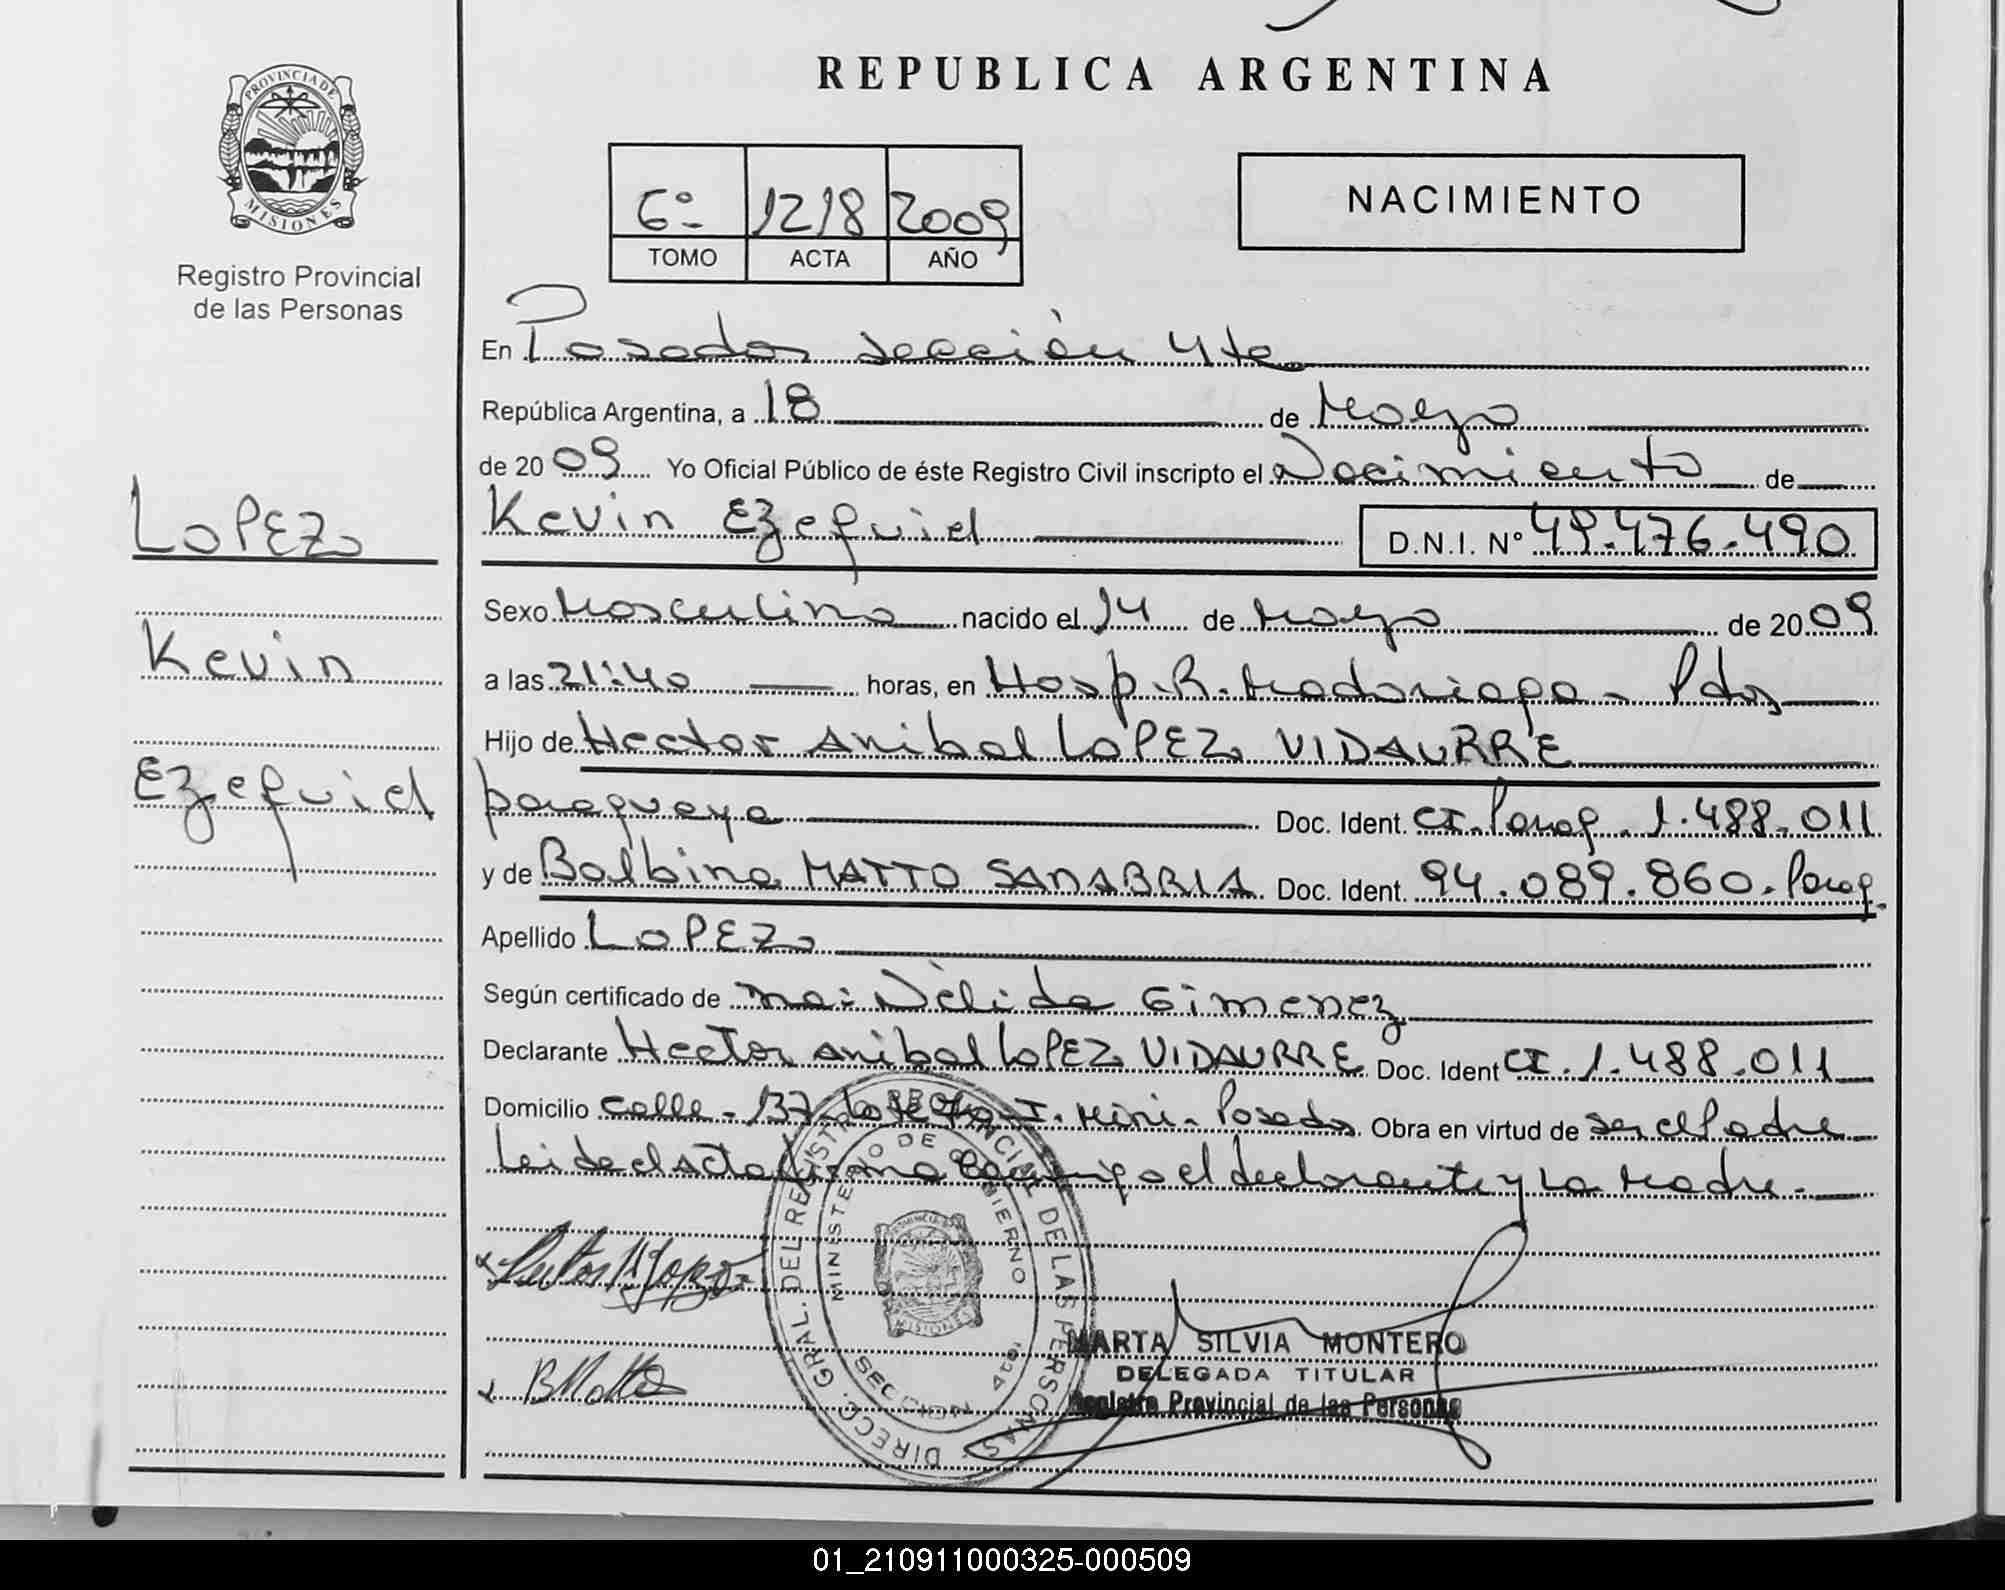 REPUBLICA ARGENTINA
PROVINCIA DE MISIONES
Registro Provincial
de las Personas
6º 1218 2009
TOMO ACTA AÑO
NACIMIENTO
En Posadas sección 4ta
República Argentina, a 18 de Mayo
de 2009 Yo Oficial Público de éste Registro Civil inscripto el Nacimiento de
LOPEZ
Kevin Ezequiel D.N.I. Nº 49.476.490
Sexo Masculino nacido el 14 de Mayo de 2009
Kevin
a las 21:40 horas, en Hosp. R. Madariaga - Pdas
Hijo de Hector Anibal LOPEZ VIDAURRE
Ezequiel
paraguaya Doc. Ident. CI. Parag. 1.488.011
y de Balbina MATTO SANABRIA Doc. Ident. 94.089.860. Parag.
Apellido LOPEZ
Según certificado de Ma: Nélida Gimenez
Declarante Hector Anibal LOPEZ VIDAURRE Doc. Ident CI. 1.488.011
Domicilio calle - 137 I. Mini - Posadas Obra en virtud de ser el Padre
Leida el Acta firma conmigo el declarante y La Madre.
DIRECC. GRAL. DEL REGISTRO PROVINCIAL DE LAS PERSONAS
MINISTERIO DE GOBIERNO
MISIONES
SECCION 4ta.
B Matto
MARTA SILVIA MONTERO
DELEGADA TITULAR
Registro Provincial de las Personas
01_210911000325-000509